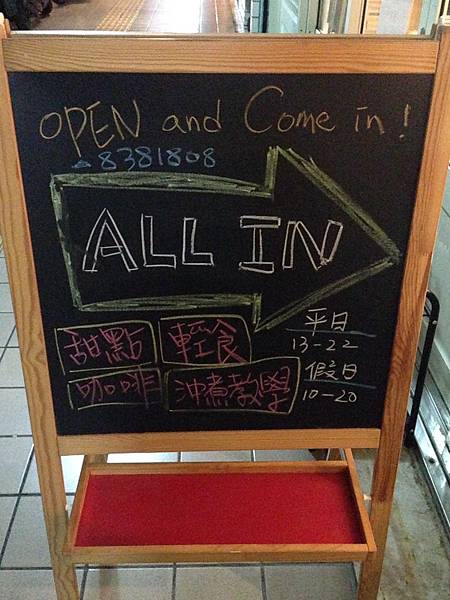 OPEN and Come in!
8381808
ALL IN
甜點 輕食
咖啡 沖煮教學
平日
13-22
假日
10-20